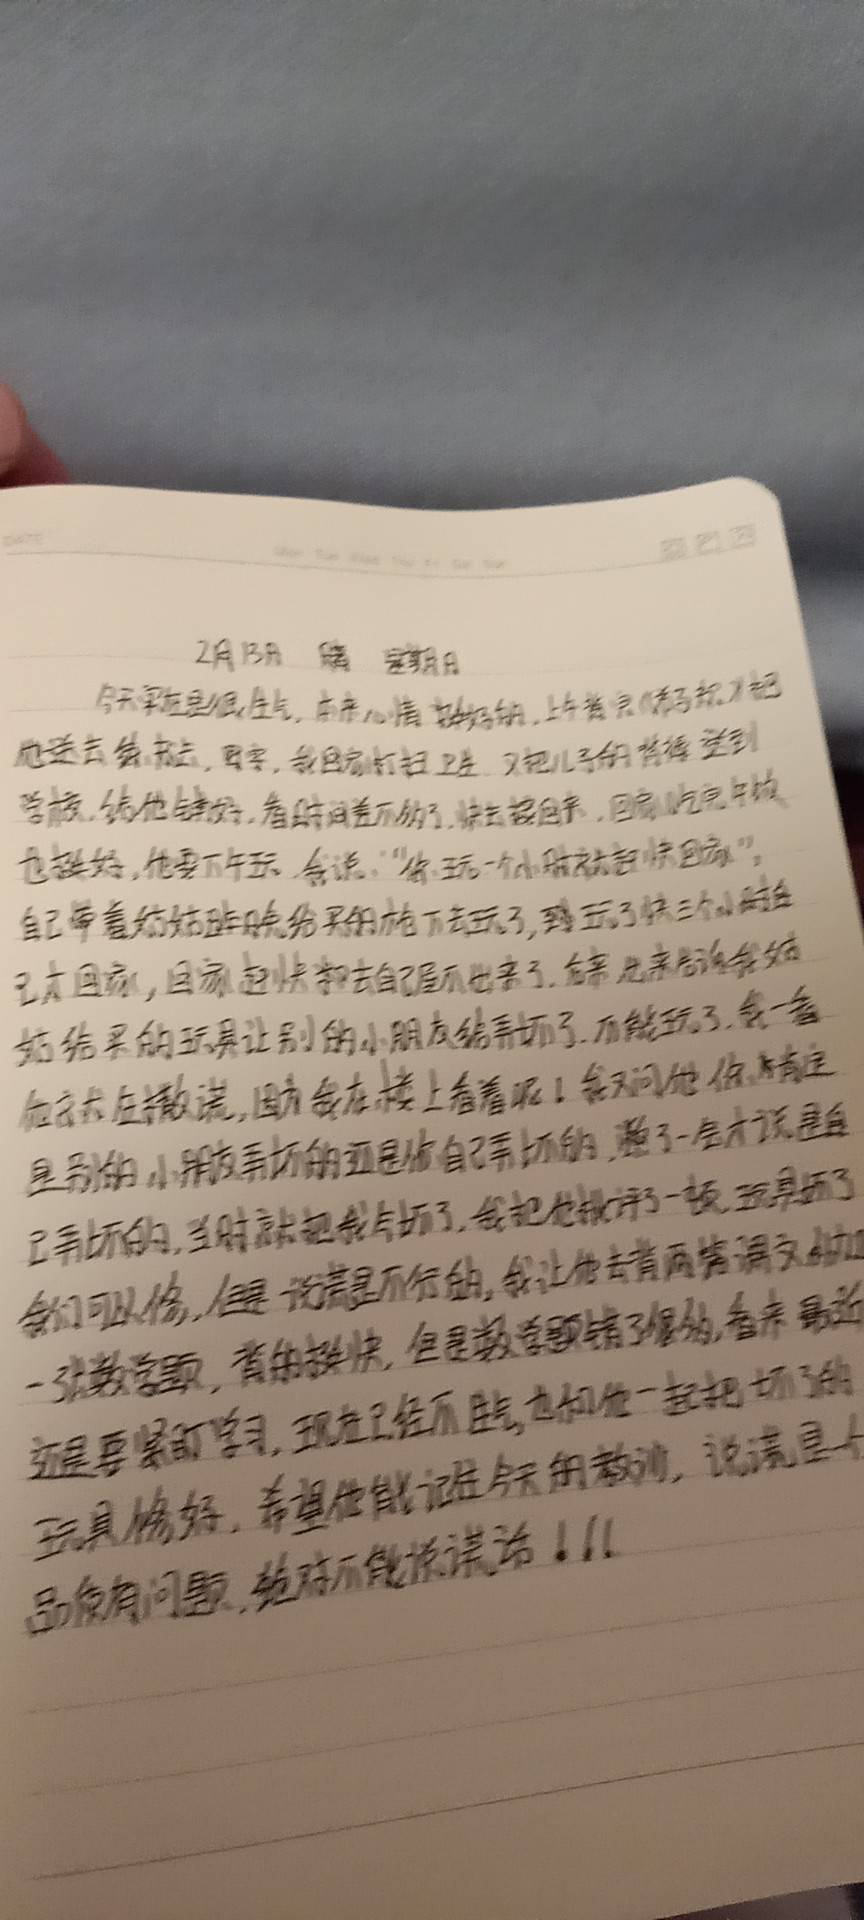 DATE
2月13日 晴 星期日
今天实在是很生气,本来心情挺好的,上午背完
他送去,回来,我回家打扫卫生 又把儿子的 送到
学校,给他铺好,看时间差不多了,快去接回来,回家吃完午饭
也挺好,他要下午玩,我说:“你玩一个小时就赶快回家”,
自己带着姑姑昨晚给买的 下去玩了,玩了快三个小时自
己才回家,回家赶快 去自己屋不出来了.结果出来后说我姑
姑给买的玩具让别的小朋友给弄坏了.不能玩了.我一看
在撒谎,因为我在楼上看着呢!我又问他 你确定
是别的小朋友弄坏的还是你自己弄坏的,憋了一会才说是自
己弄坏的,当时就把我气坏了.我把他批评了一顿,玩具坏了
我们可以修,但是说谎是不行的,我让他去背两篇课文
一张数学题,背的挺快,但是数学题错了很多,看来最近
还是要紧盯学习,现在已经不生气,也和他一起把坏了的
玩具修好,希望他能记住今天的教训,说谎是个
品质有问题,绝对不能说谎话!!!